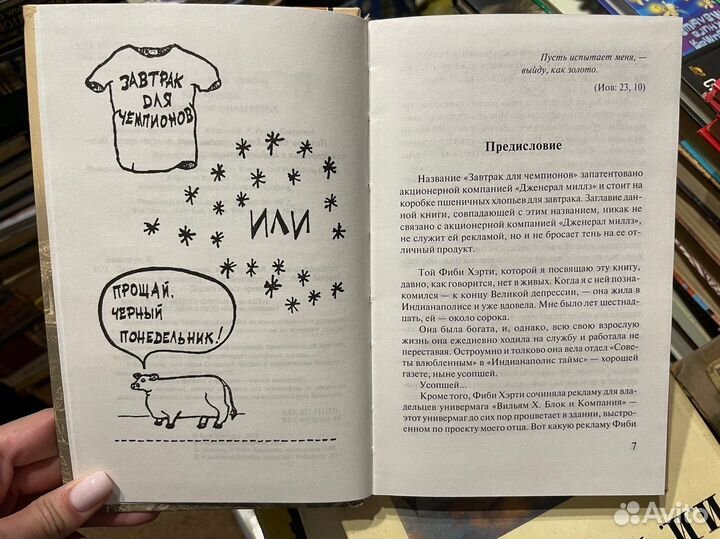 ЗАВТРАК
ДЛЯ
ЧЕМПИОНОВ
ИЛИ
ПРОЩАЙ,
ЧЕРНЫЙ
ПОНЕДЕЛЬНИК!
Пусть испытает меня, —
выйду, как золото.
(Иов: 23, 10)
Предисловие
Название «Завтрак для чемпионов» запатентовано
акционерной компанией «Дженерал миллз» и стоит на
коробке пшеничных хлопьев для завтрака. Заглавие дан-
ной книги, совпадающей с этим названием, никак не
связано с акционерной компанией «Дженерал миллз»,
не служит ей рекламой, но и не бросает тень на ее от-
личный продукт.
Той Фиби Хэрти, которой я посвящаю эту книгу,
давно, как говорится, нет в живых. Когда я с ней позна-
комился — к концу Великой депрессии, — она жила в
Индианаполисе и уже вдовела. Мне было лет шестнад-
цать, ей — около сорока.
Она была богата, и, однако, всю свою взрослую
жизнь она ежедневно ходила на службу и работала не
переставая. Остроумно и толково она вела отдел «Сове-
ты влюбленным» в «Индианаполис таймс» — хорошей
газете, ныне усопшей.
Усопшей...
Кроме того, Фиби Хэрти сочиняла рекламу для вла-
дельцев универмага «Вильям Х. Блок и Компания» —
этот универмаг до сих пор процветает в здании, выстро-
енном по проекту моего отца. Вот какую рекламу Фиби
7
Avito